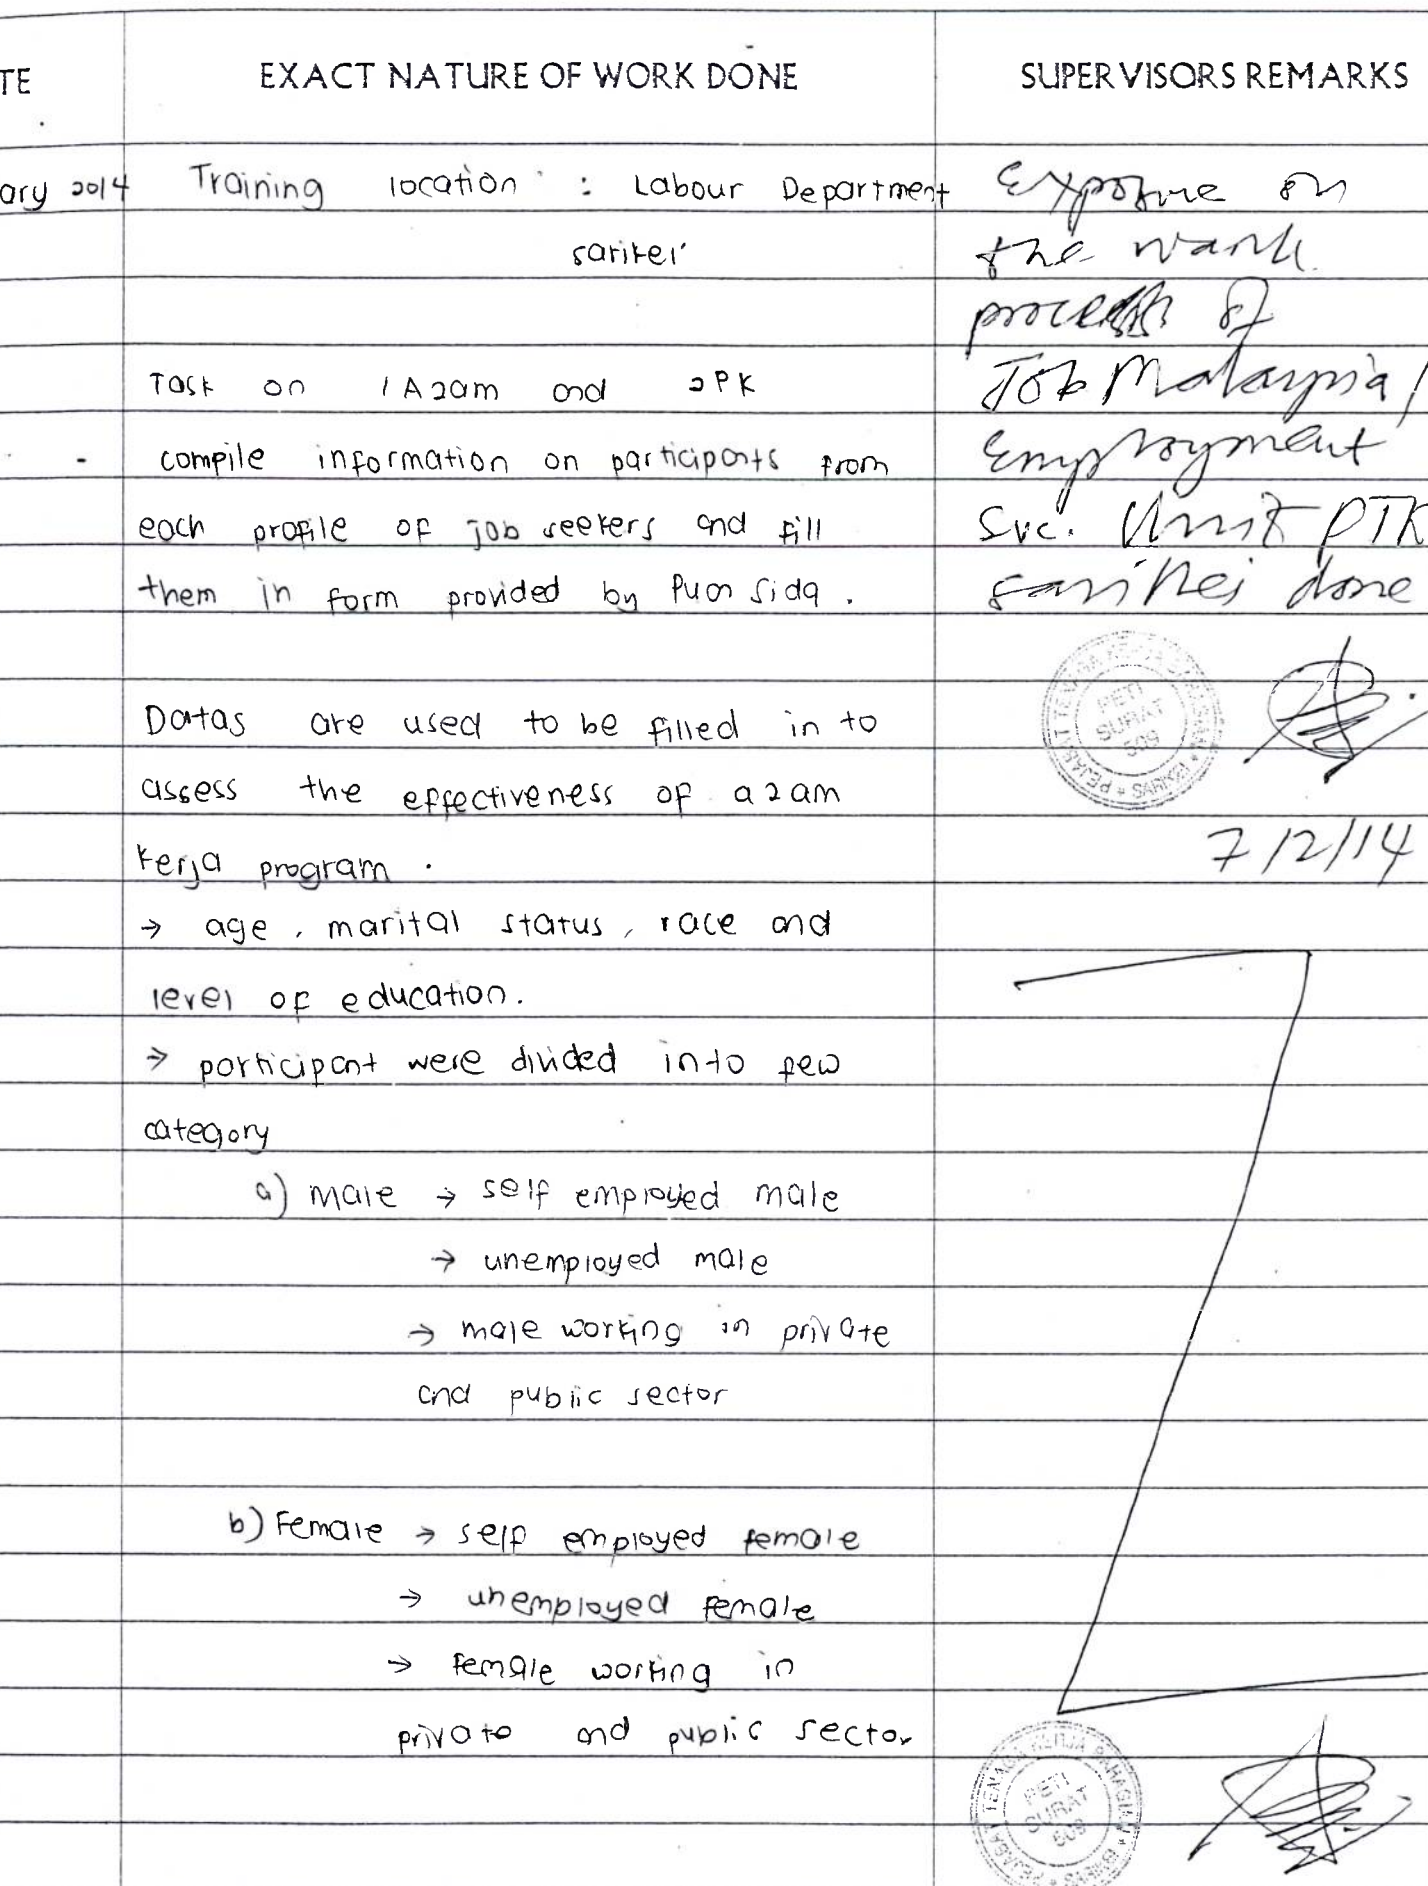 TE
EXACT NATURE OF WORK DONE
SUPERVISORS REMARKS
ary 2014
Training location : Labour Department
sarikei
Task on 1 Azam and 2PK
- compile information on participants from
each profile of job seekers and fill
them in form provided by Puan Sida.
Datas are used to be filled in to
assess the effectiveness of azam
kerja program.
→ age, marital status, race and
level of education.
→ participant were divided into few
category
a) male → self employed male
→ unemployed male
→ male working in private
and public sector
b) Female → self employed female
→ unemployed female
→ female working in
private and public sector
Exposure on
the work
process of
Job Malaysia /
Employment
Svc. Unit PTK
Sarikei done
PEJABAT TENAGA KERJA
PETI
SURAT
509
7/2/14
PEJABAT TENAGA KERJA BAHAGIAN
PETI
SURAT
509